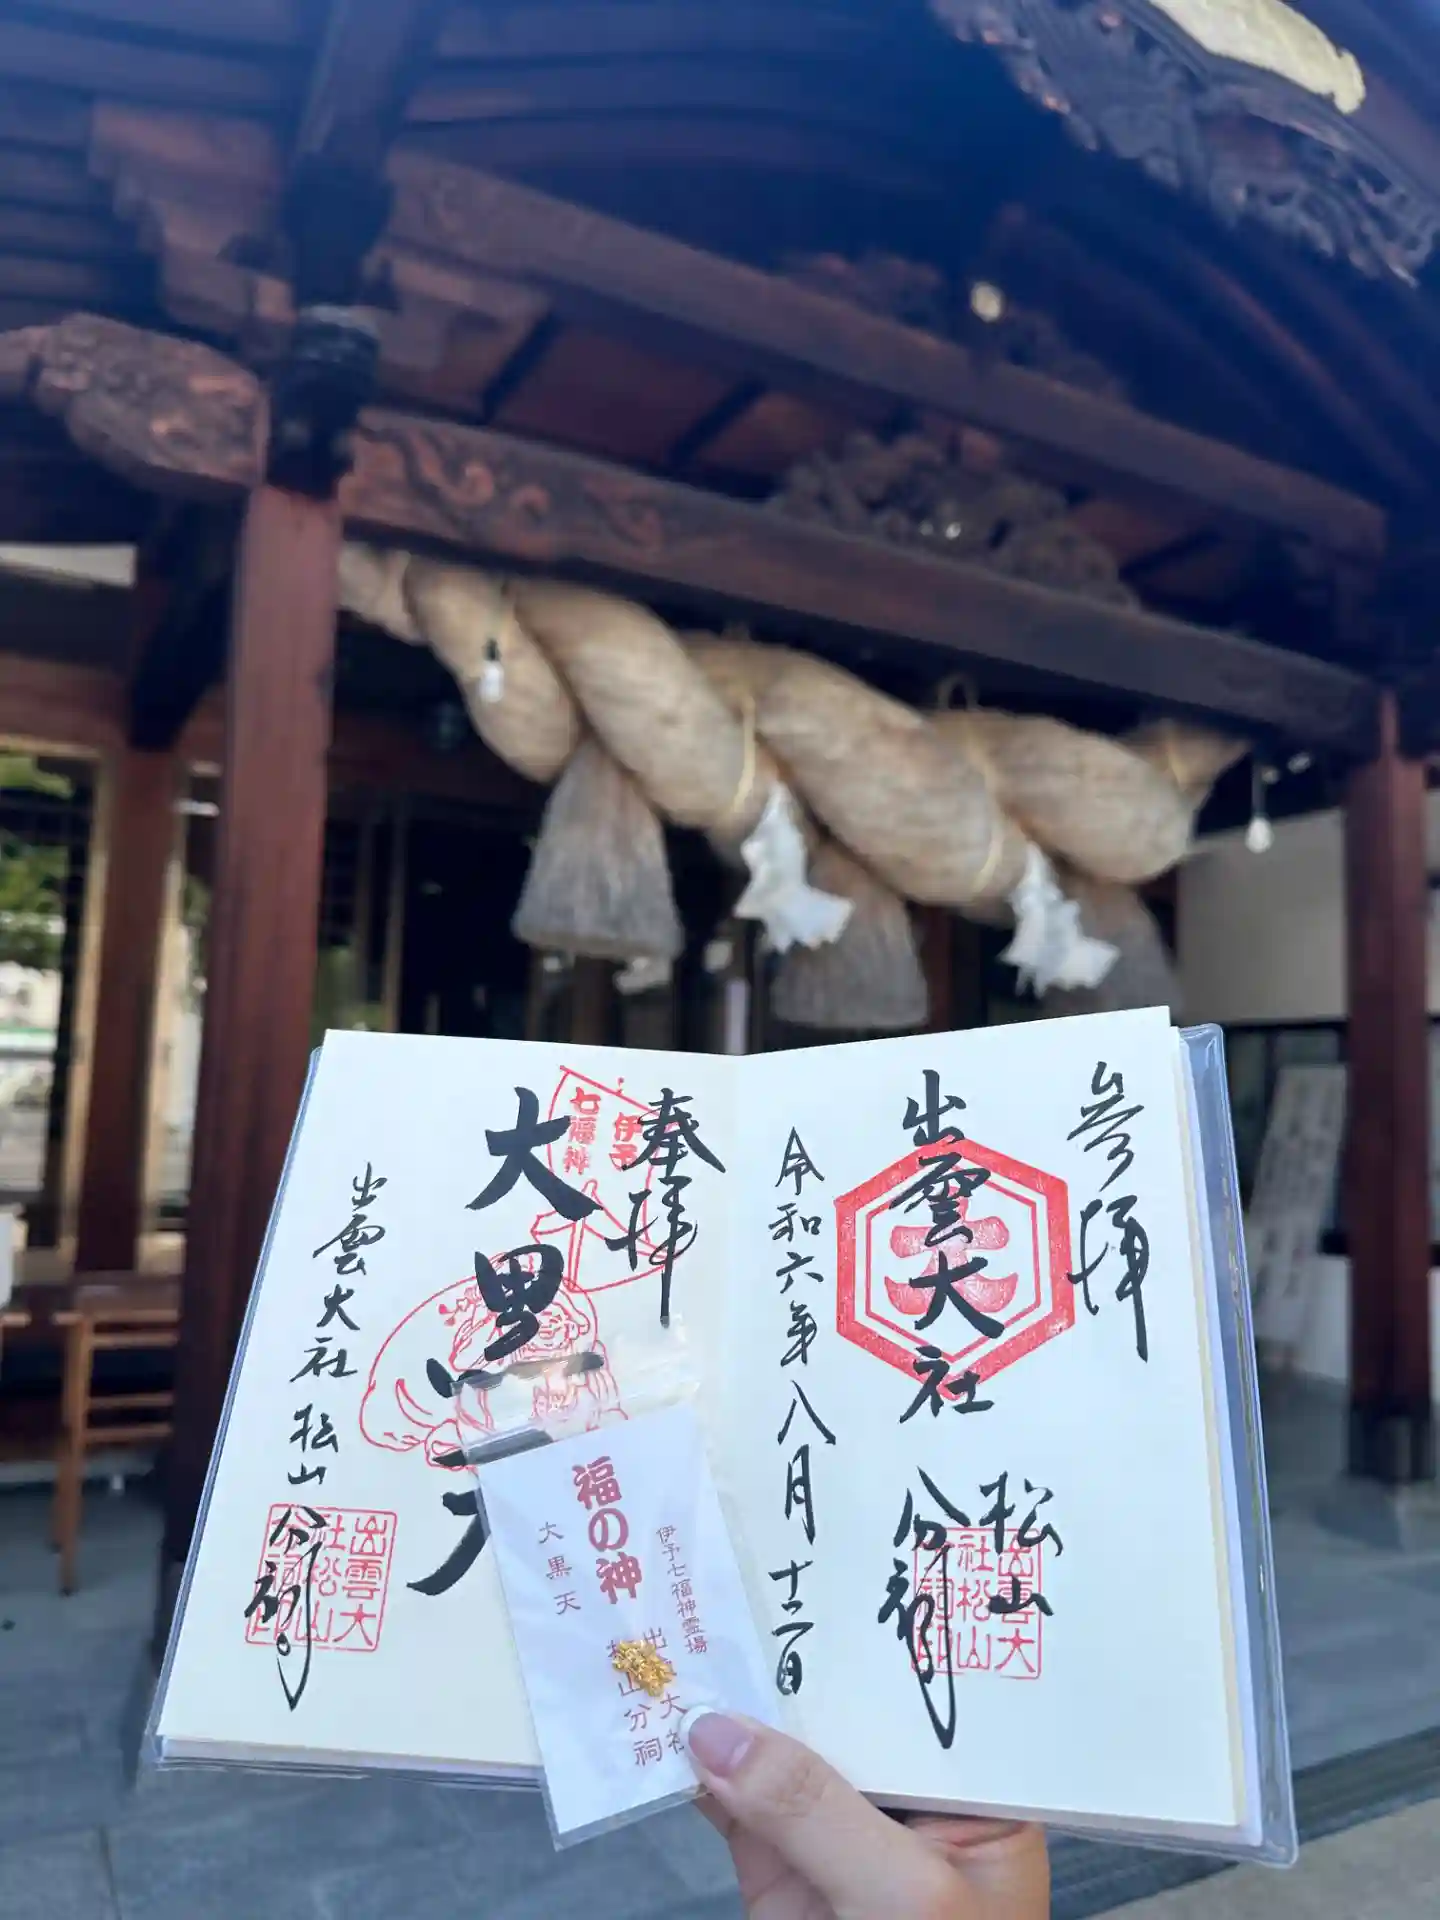 参拝
出雲大社
松山
分祠
令和六年八月十二日
大
出雲大
社松山
分祠印
奉拝
大黒天
出雲大社 松山分祠
伊予
七福神
出雲大
社松山
分祠印
伊予七福神霊場
福の神
大黒天
出雲大社
松山分祠